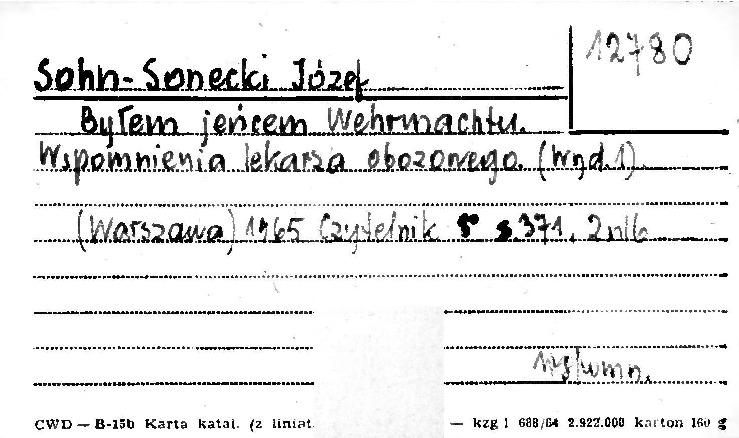 12780
Sohn-Sonecki Józef
Byłem jeńcem Wehrmachtu.
Wspomnienia lekarza obozowego. (Wyd. 1)
(Warszawa) 1965 Czytelnik s. 371, 2 nlb
CWD — B-15b Karta katal. (z liniat. — kzg 1 688/64 2.922.000 karton 160 g